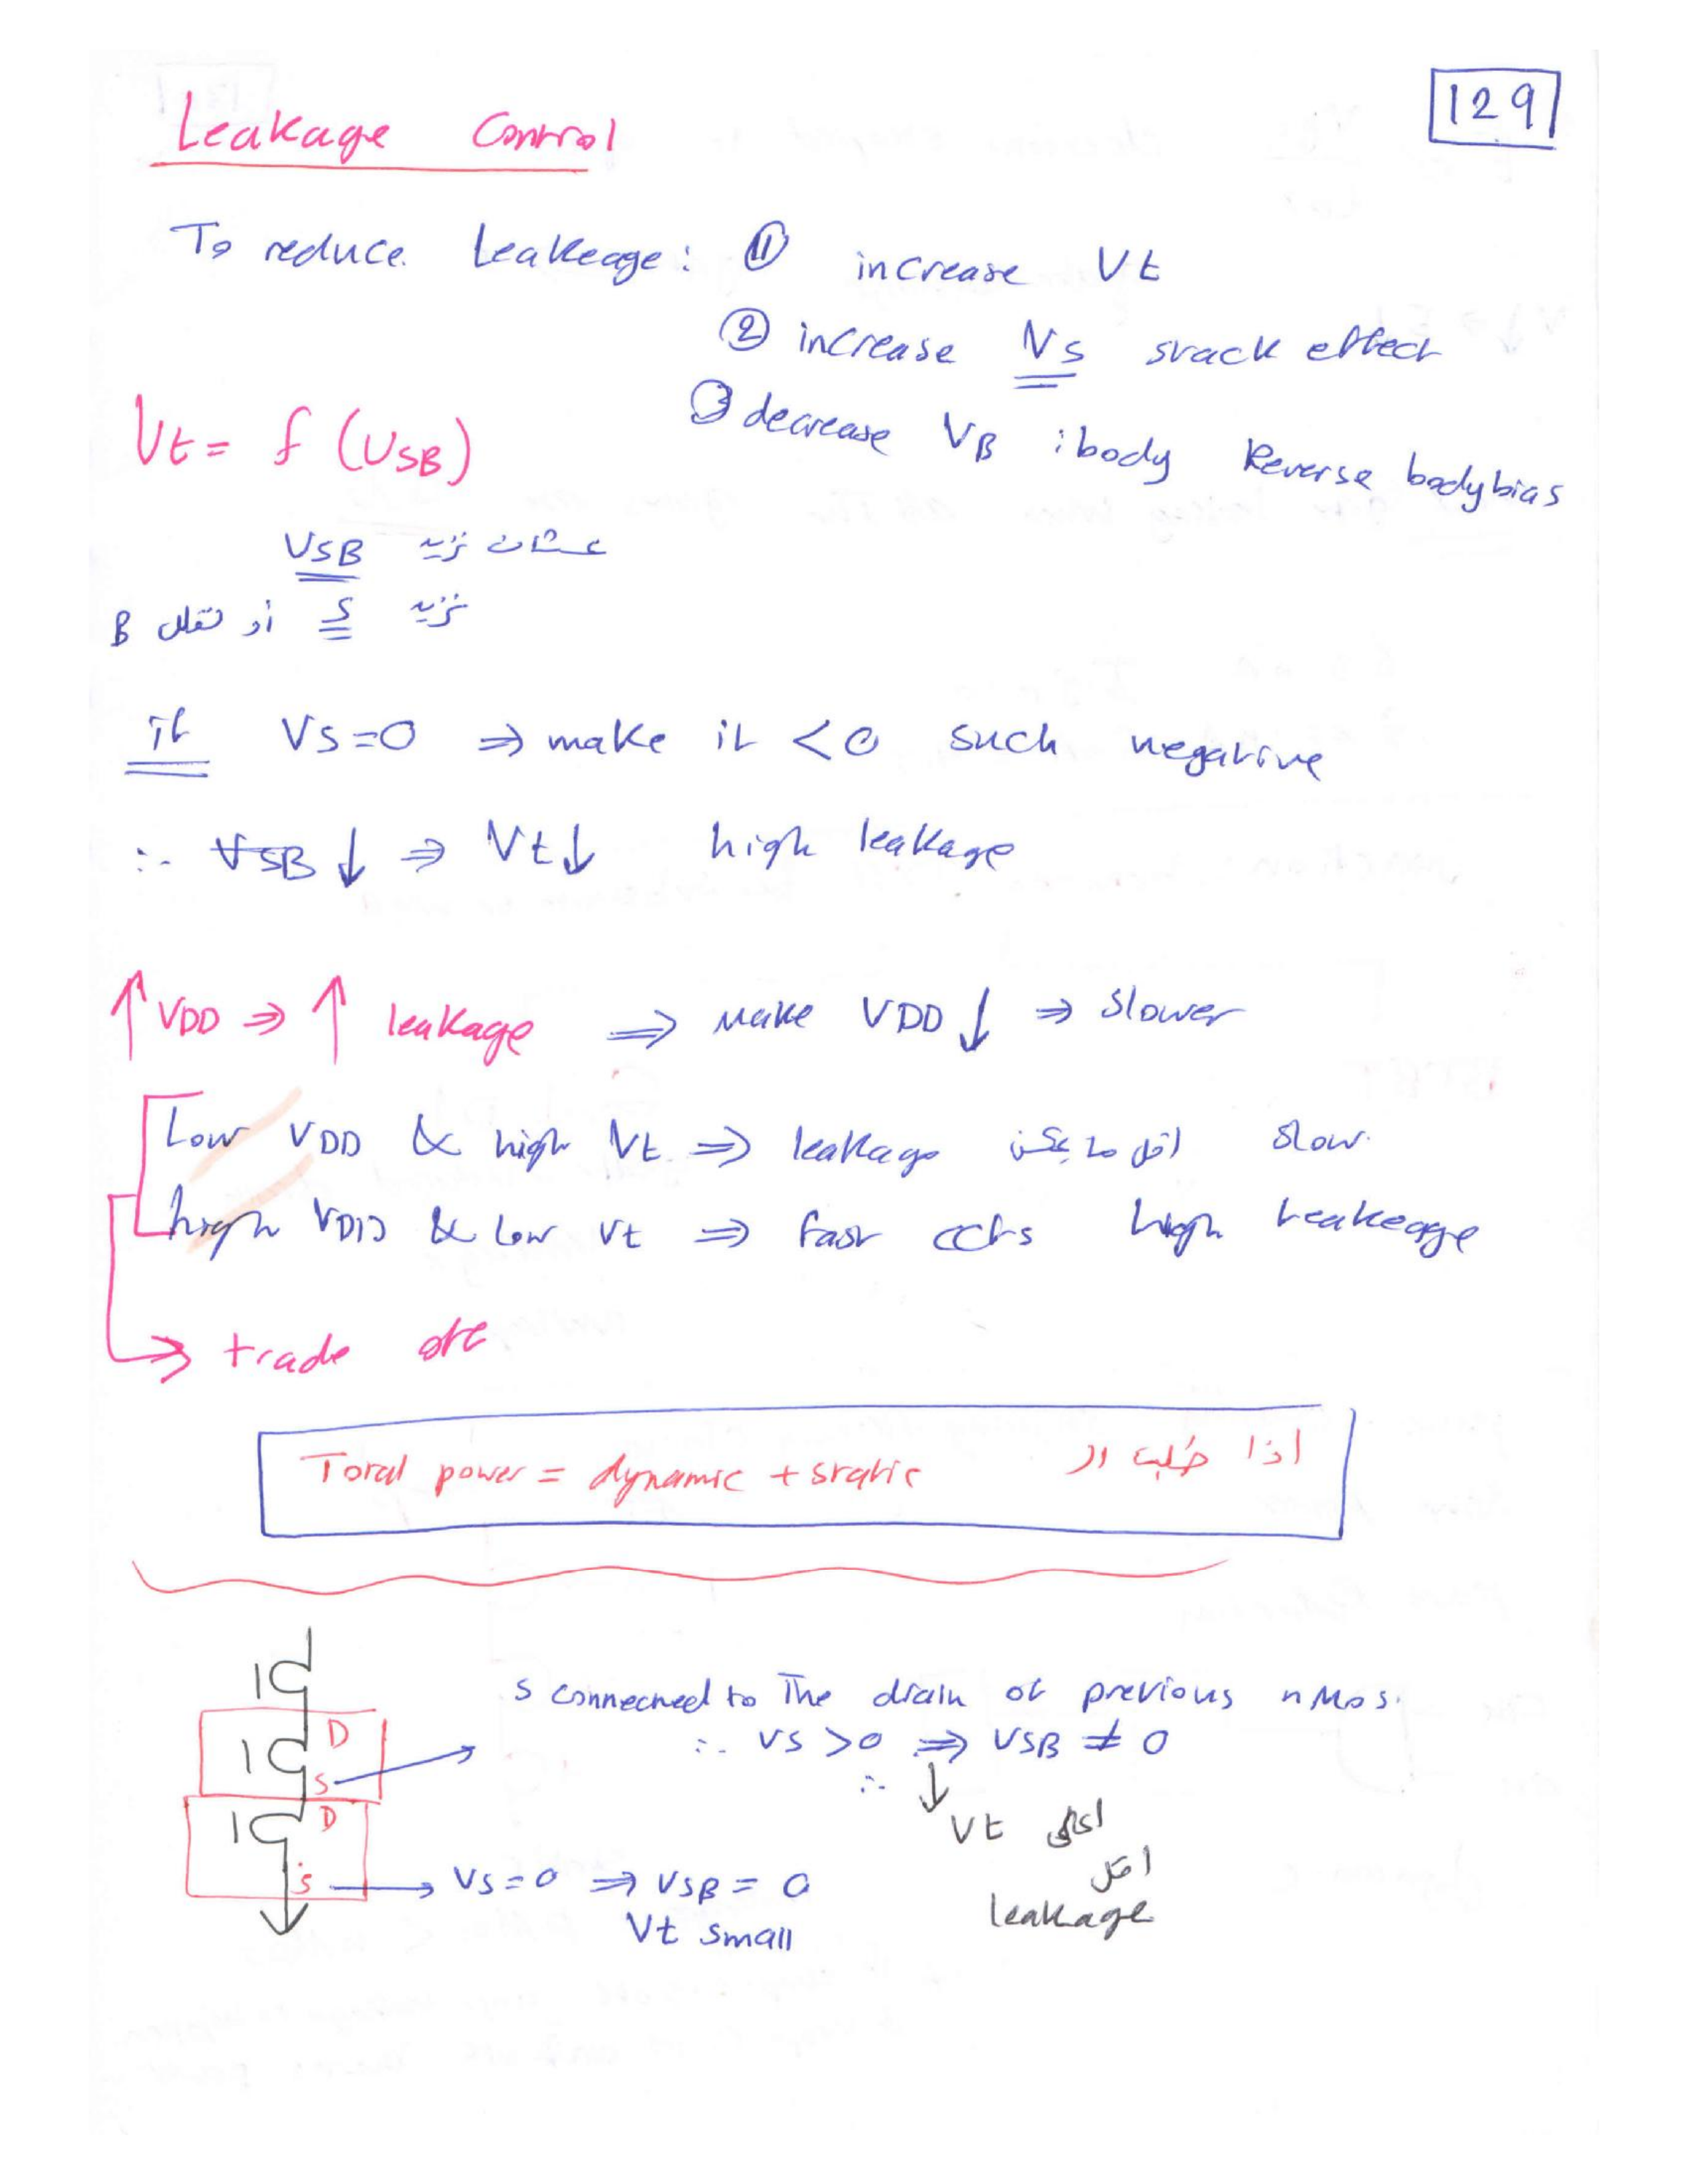 129
Leakage Control
To reduce Leakeage: ① increase Vt
② increase Vs stack effect
③ decrease VB : body Reverse body bias
Vt = f (VSB)
عشان نزيد VSB
نزيد S أو نقلل B
if Vs=0 ⇒ make it <0 such negative
∴ VSB ↓ ⇒ Vt ↓ high leakage
↑ VDD ⇒ ↑ leakage ⇒ make VDD ↓ ⇒ slower
Low VDD & high Vt ⇒ leakage اقل ما يمكن slow
high VDD & Low Vt ⇒ fast ccts high Leakeage
→ trade off
اذا طُلب ال Total power = dynamic + static
D
S
D
S
S connecned to The drain of previous nMos.
∴ VS >0 ⇒ VSB ≠ 0
∴ ↓
Vt اعلى
اقل
leakage
→ VS=0 ⇒ VSB = 0
Vt small